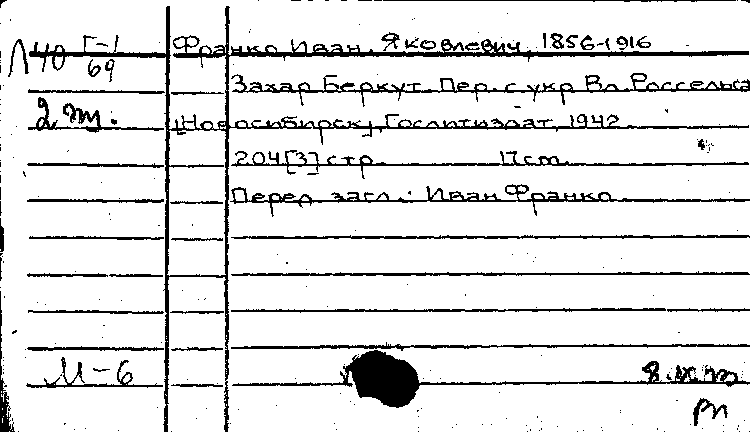 Л40 Г-1/69
Франко, Иван Яковлевич, 1856-1916
Захар Беркут. Пер. с укр Вл. Россельса
2 эк.
[Новосибирск], Гослитиздат, 1942
204[3] стр. 17cm.
Перед загл.: Иван Франко
М-6